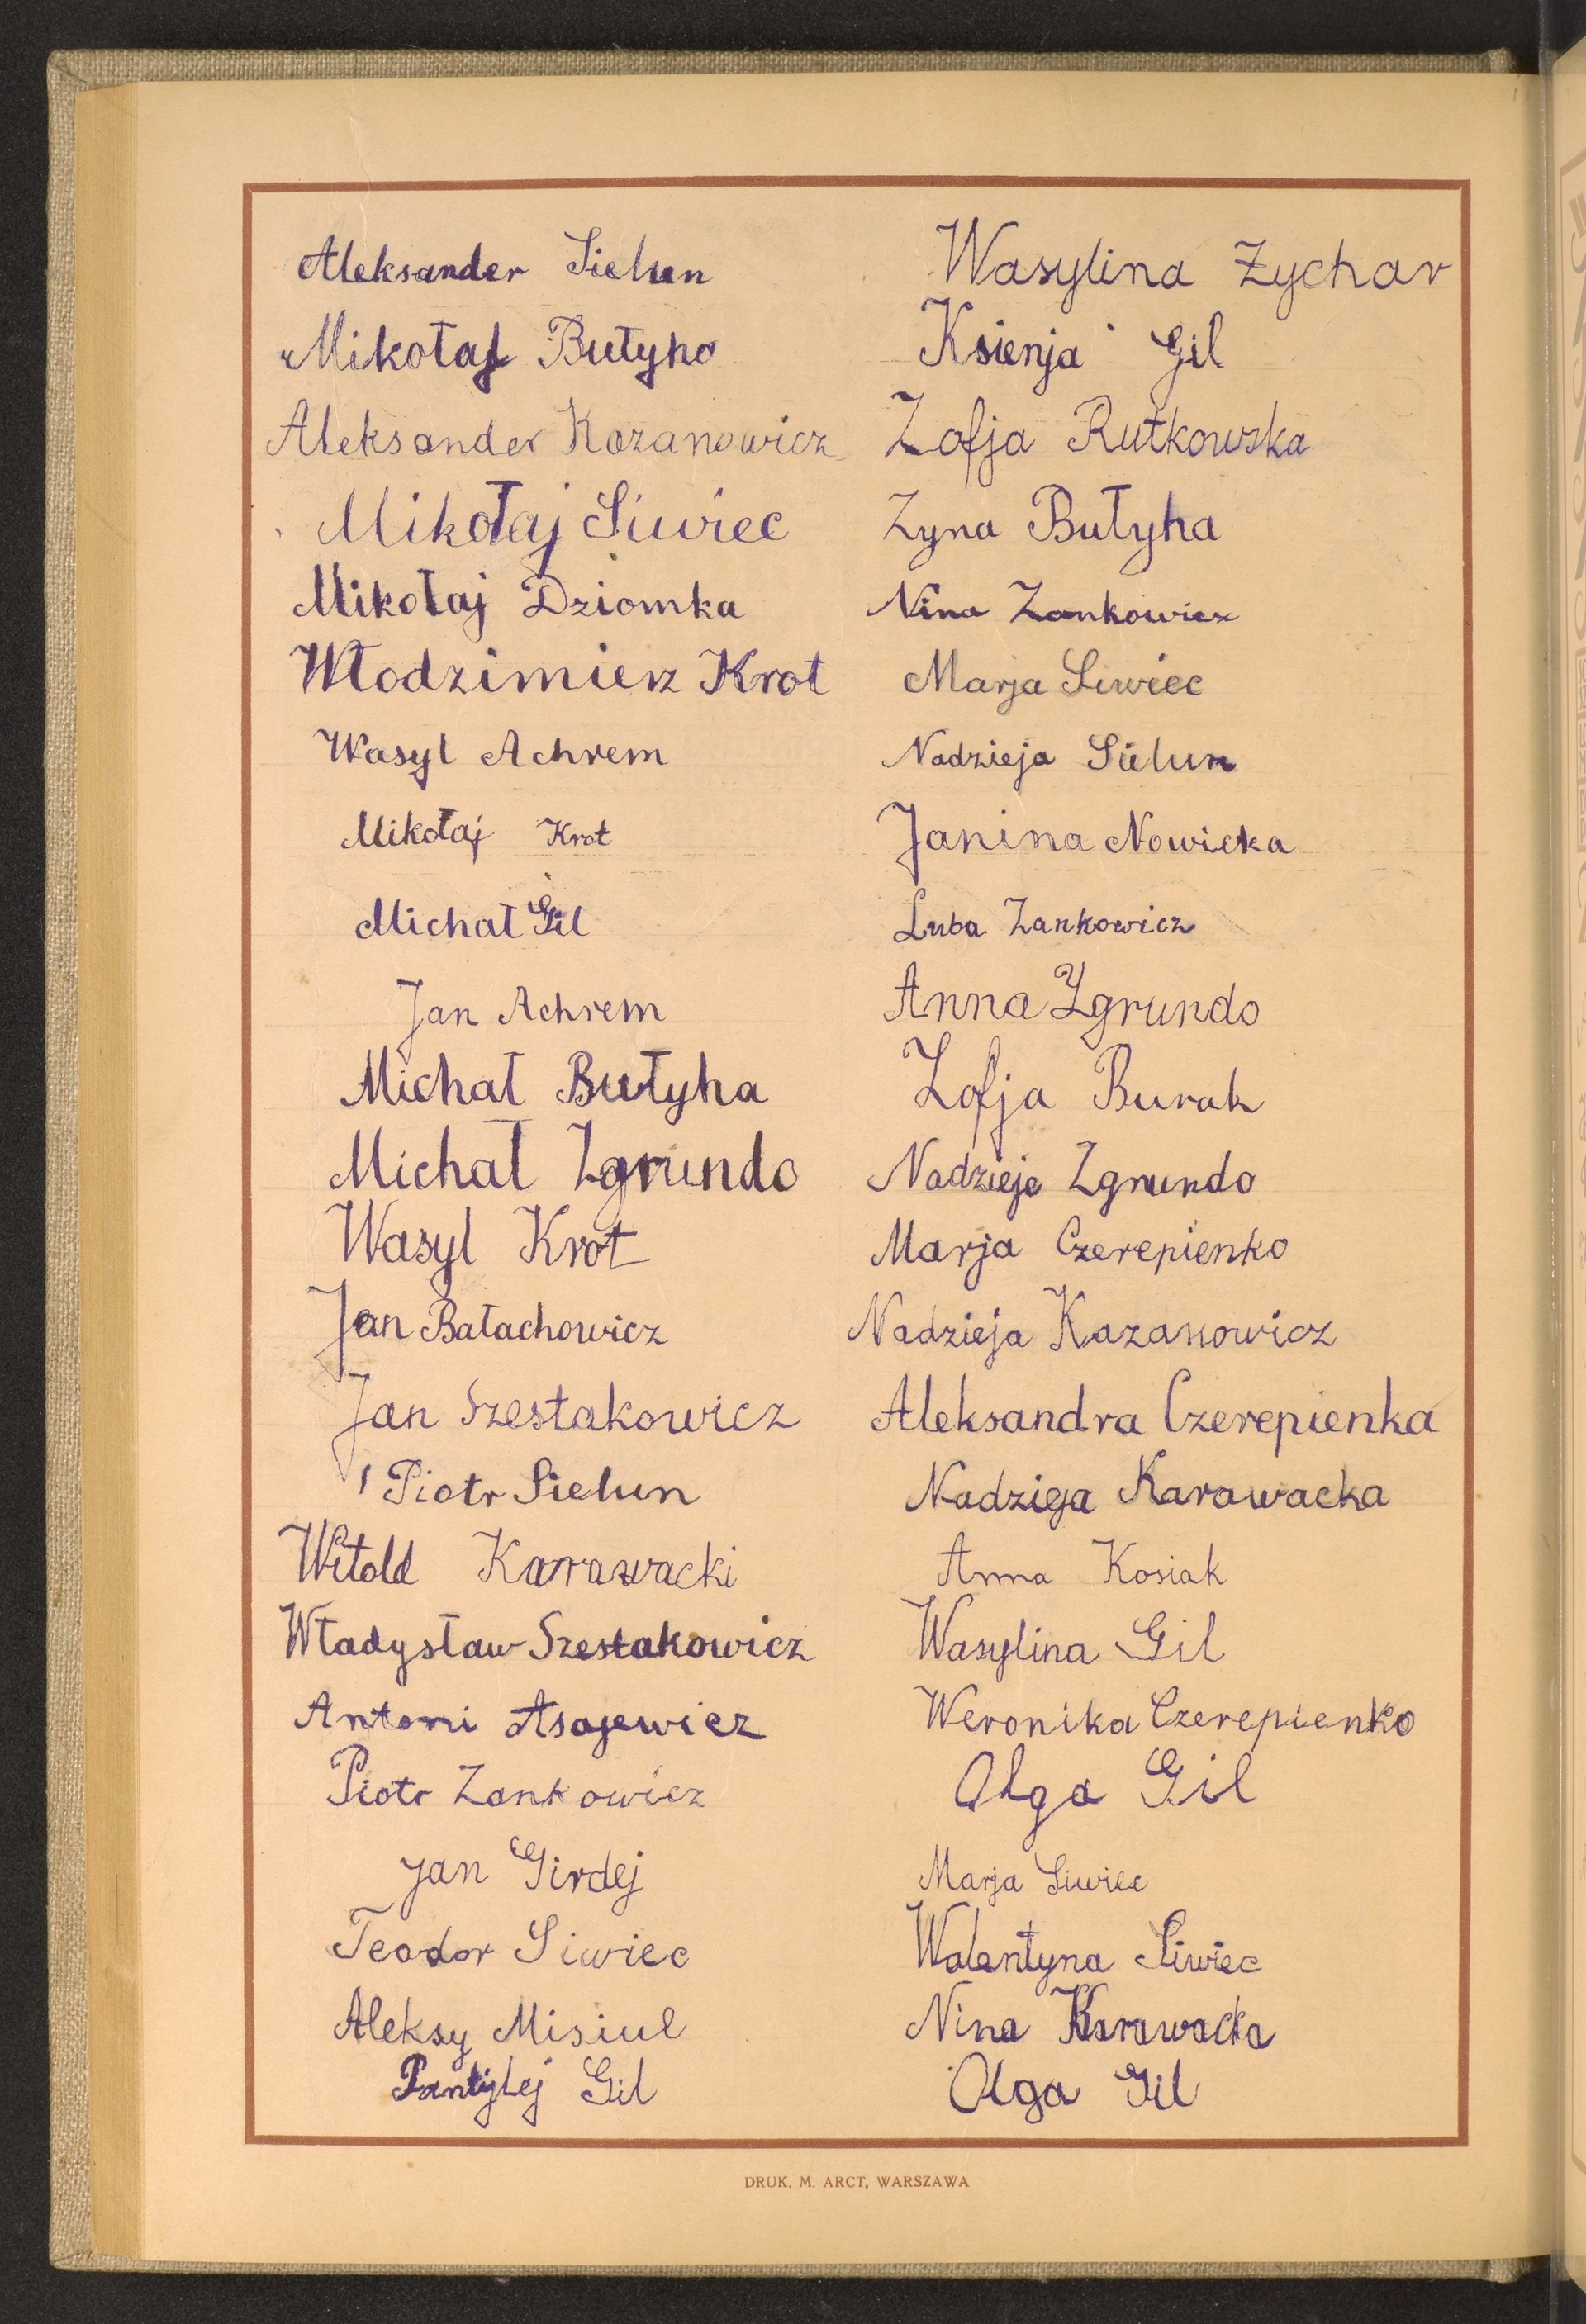 Aleksander Sielun
Mikołaj Butyho
Aleksander Kozanowicz
Mikołaj Siwiec
Mikołaj Dziomka
Włodzimierz Krot
Wasyl Achrem
Mikołaj Krot
Michał Gil
Jan Achrem
Michał Butyha
Michał Zgrundo
Wasyl Krot
Jan Bałachowicz
Jan Szestakowicz
Piotr Sielun
Witold Karawacki
Władysław Szestakowicz
Antoni Asajewicz
Piotr Zankowicz
Jan Girdej
Teodor Siwiec
Aleksy Misiul
Pantylej Gil
Wasylina Zychar
Ksienja Gil
Zofja Rutkowska
Zyna Butyha
Nina Zankowicz
Marja Siwiec
Nadzieja Sielun
Janina Nowicka
Luba Zankowicz
Anna Zgrundo
Zofja Burak
Nadzieje Zgrundo
Marja Czerepienko
Nadzieja Kazanowicz
Aleksandra Czerepienka
Nadzieja Karawacka
Anna Kosiak
Wasylina Gil
Weronika Czerepienko
Olga Gil
Marja Siwiec
Walentyna Siwiec
Nina Karawacka
Olga Gil
DRUK. M. ARCT, WARSZAWA